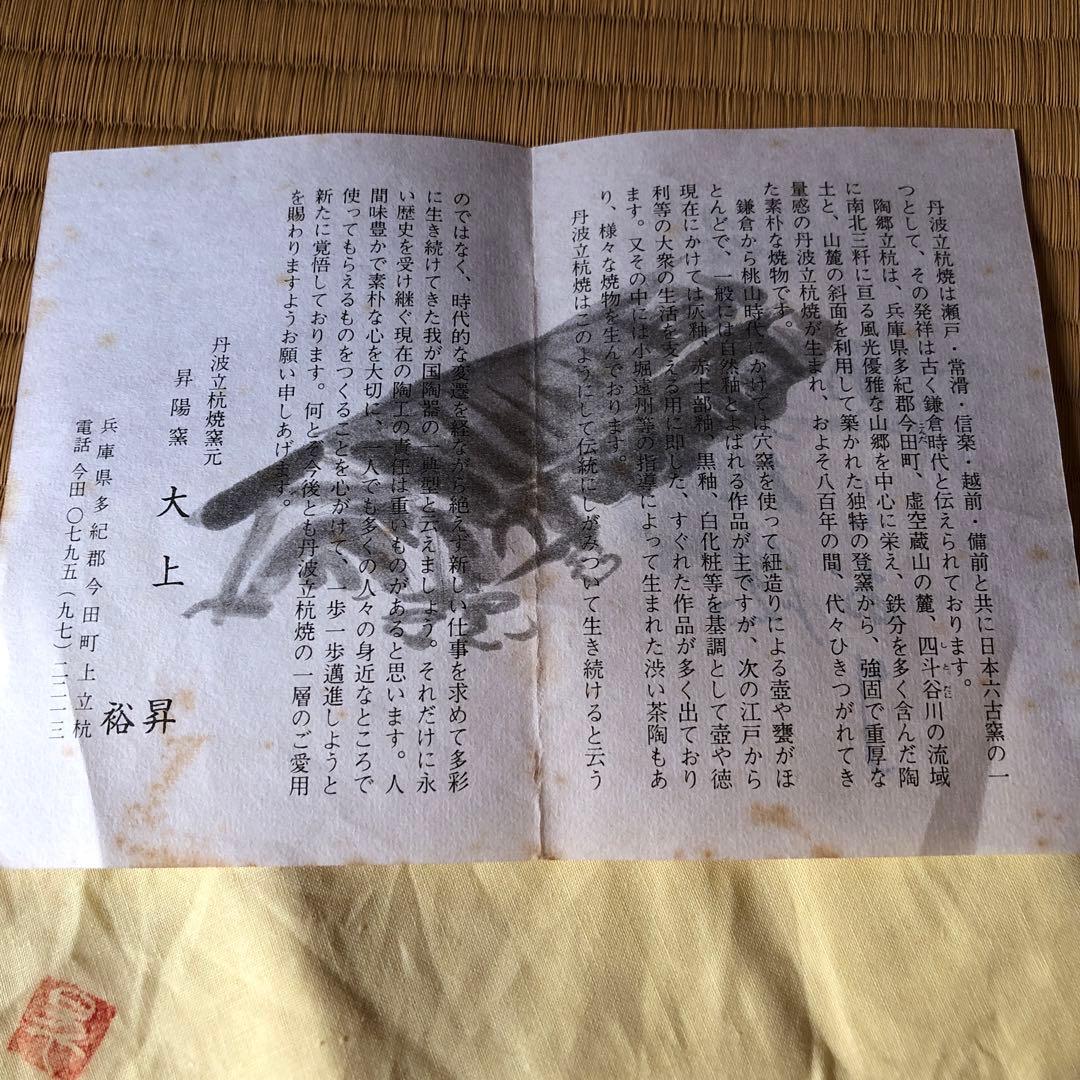 丹波立杭焼は瀬戸・常滑・信楽・越前・備前と共に日本六古窯の一
つとして、その発祥は古く鎌倉時代と伝えられております。
陶郷立杭は、兵庫県多紀郡今田町、虚空蔵山の麓、四斗谷川の流域
こんだ
しとだに
に南北三粁に亘る風光優雅な山郷を中心に栄え、鉄分を多く含んだ陶
土と、山麓の斜面を利用して築かれた独特の登窯から、強固で重厚な
量感の丹波立杭焼が生まれ、およそ八百年の間、代々ひきつがれてき
た素朴な焼物です。
鎌倉から桃山時代にかけては穴窯を使って紐造りによる壺や甕がほ
とんどで、一般には自然釉とよばれる作品が主ですが、次の江戸から
現在にかけては灰釉、赤土部釉、黒釉、白化粧等を基調として壺や徳
利等の大衆の生活を支える用に即した、すぐれた作品が多く出ており
ます。又その中には小堀遠州等の指導によって生まれた渋い茶陶もあ
り、様々な焼物を生んでおります。
丹波立杭焼はこのようにして伝統にしがみついて生き続けると云う
のではなく、時代的な変遷を経ながら絶えず新しい仕事を求めて多彩
に生き続けてきた我が国陶器の一典型と云えましょう。それだけに永
い歴史を受け継ぐ現在の陶工の責任は重いものがあると思います。人
間味豊かで素朴な心を大切に、一人でも多くの人々の身近なところで
使ってもらえるものをつくることを心がけて、一歩一歩邁進しようと
新たに覚悟しております。何とぞ今後とも丹波立杭焼の一層のご愛用
を賜わりますようお願い申しあげます。
丹波立杭焼窯元
昇陽窯
大上
昇
裕
兵庫県多紀郡今田町上立杭
電話 今田 〇七九五(九七)二二一三